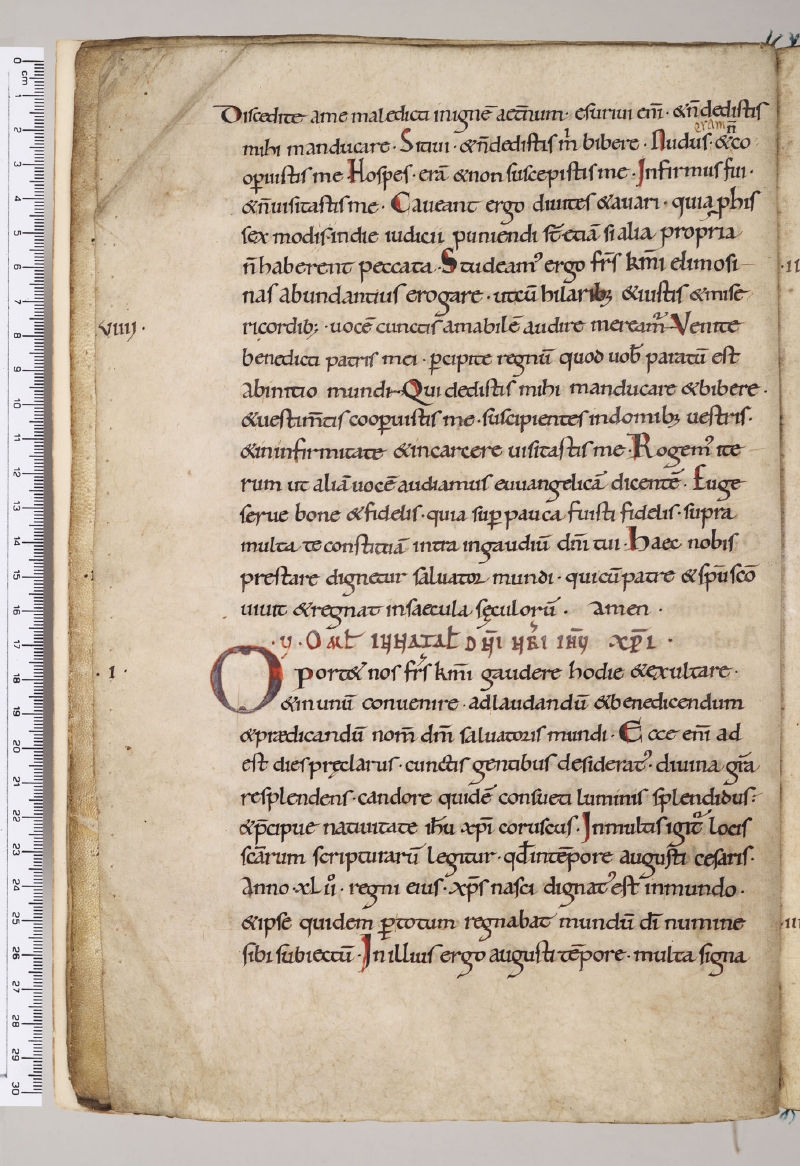 Discedite ame maledicti inignē aet̄num· esuriui em̄· &n̄dedistis
mihi manducare· Sitiui· &n̄dedistis m̄ bibere· Nudus eram· &n̄co
oꝑuistis me Hospes· erā &non suscepistis me· Infirmus fui·
&n̄uisitastis me· Caueant ergo diuites &auari· quia ꝓ his
sex modis indie iudicii puniendi s̄t etiā si alia propria
n̄ haberent peccata· Studeam᾿ ergo fr̄s km̄i elimosi
nas abundantius erogare· ut cū hilarib; &iustis &mise
VIIII·
ricordib;· uocē cunctis amabilē audire meream᾿· Venite
benedicti patris mei· ꝑcipite regnū quod uob̄ paratū est
Abinitio mundi· Qui dedistis mihi manducare &bibere·
&uestim̄tis cooꝑuistis me· suscipientes indomib; uestris·
&ininfirmitate &incarcere uisitastis me· Rogem᾿ ite
rum ut aliā uocē audiamus euuangelicā dicentē· Euge
serue bone &fidelis· quia suꝑ pauca fuisti fidelis· supra
multa te constituā intra ingaudiū dn̄i tui· Haec nobis
prestare dignetur saluator mundi· qui cū patre &sp̄u sc̄o
uiuit &regnat insaecula sęculorū· Amen·
·V· OMEL̄ IN NATAL̄ DN̄I NR̄I IHŪ XP̄I·
·I·
Oport& nos fr̄s km̄i gaudere hodie &exultare·
&inunū conuenire· adlaudandū &benedicendum
&prædicandū nom̄ dn̄i saluatoris mundi· Ecce em̄ ad
est dies pręclarus· cunctis gentibus desiderat᾿· diuina gr̄a
resplendens· candore quidē consueti luminis splendidus·
&p̄cipue natiuitate ih̄u xp̄i coruscus· In multis igit᾿ locis
sc̄arum scripturarū legitur· qđ intēpore augusti cesaris·
Anno· xl ii· regni eius· xp̄s nasci dignat᾿ est inmundo·
&ipse quidem ꝑ totum regnabat mundū dī numine
sibi subiectū· In illius ergo augusti tēpore· multa signa